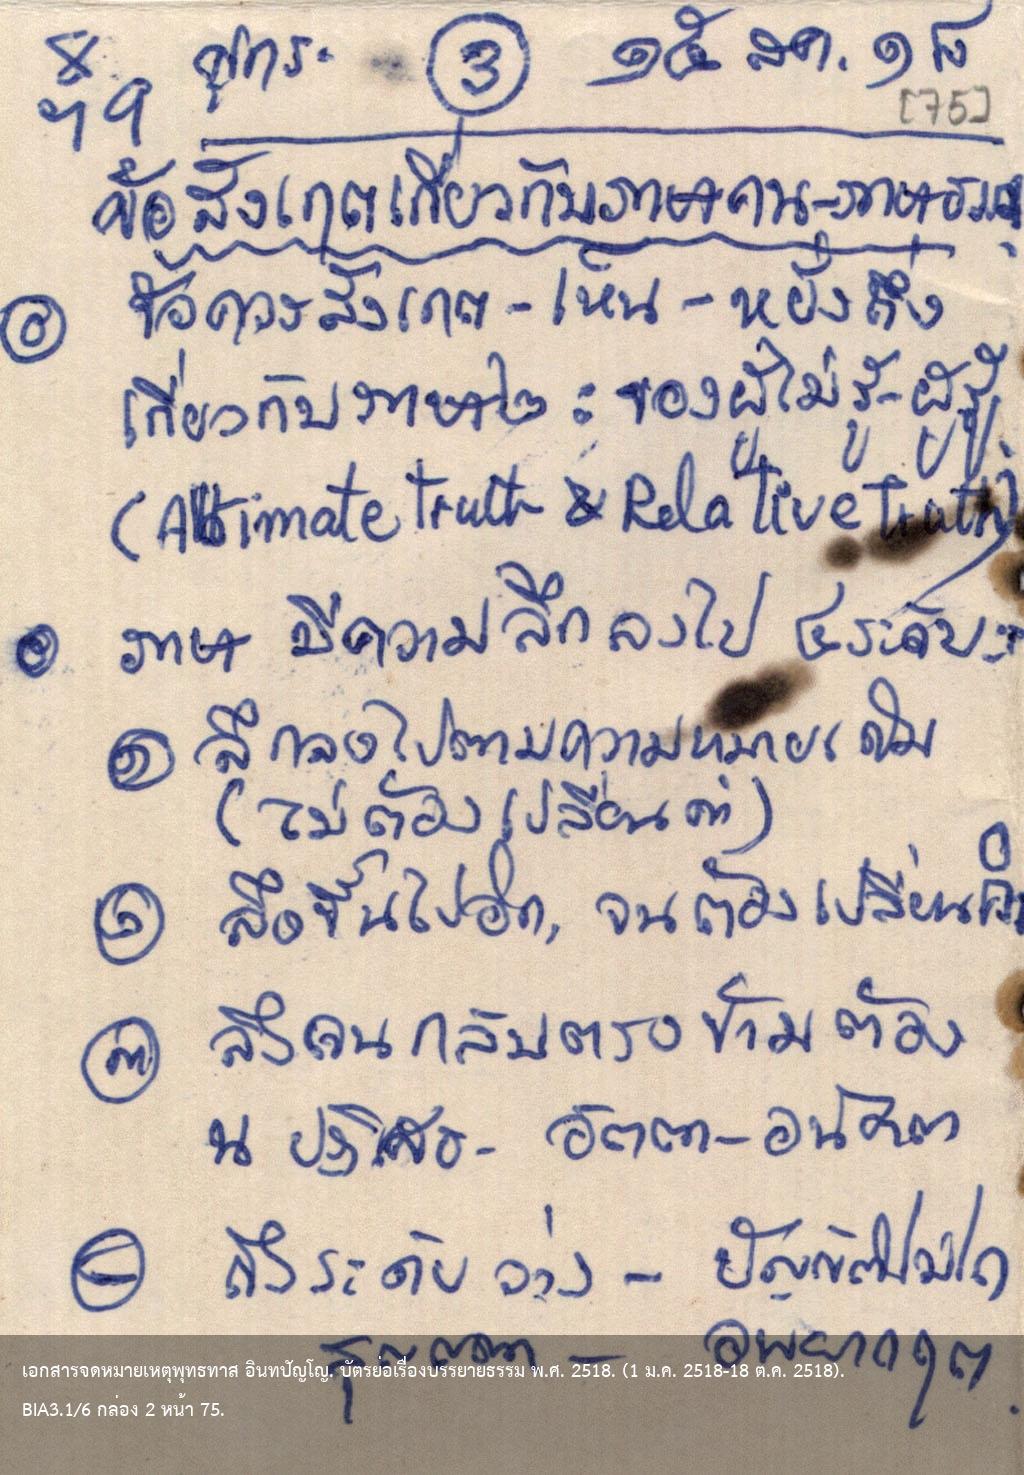 ๓ ๑๕ สค. ๑๘
[75]
ข้อสังเกตเกี่ยวกับภาษาคน-ภาษาธรรม
ข้อควรสังเกต - เห็น - หยั่งถึง
เกี่ยวกับภาษา ๒ : ของผู้ไม่รู้ - ผู้รู้
(Altimate truth & Relative truth)
ภาษา มีความลึกลงไป ๔ ระดับ :-
๑ ลึกลงไปตามความหมายเดิม
(ไม่ต้องเปลี่ยนคำ)
๒ ลึกขึ้นไปอีก, จนต้องเปลี่ยนคำ
๓ ถึงจนกลับตรงข้าม ต้อง
ปฏิเสธ - อัตตา - อนัตตา
ถึงระดับ ว่าง - บัญญัติไม่ได้
สุญญตา - อพยากฤต.
เอกสารจดหมายเหตุพุทธทาส อินทปัญโญ. บัตรย่อเรื่องบรรยายธรรม พ.ศ. 2518. (1 ม.ค. 2518-18 ต.ค. 2518).
BIA3.1/6 กล่อง 2 หน้า 75.